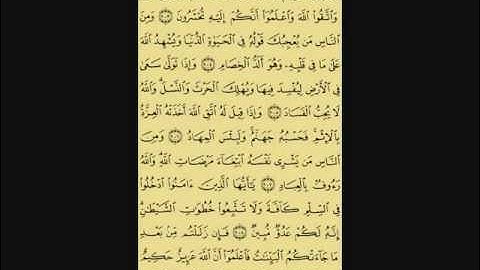 وَٱتَّقُوا۟ ٱللَّهَ وَٱعْلَمُوٓا۟ أَنَّكُمْ إِلَيْهِ تُحْشَرُونَ ۝ وَمِنَ
ٱلنَّاسِ مَن يُعْجِبُكَ قَوْلُهُۥ فِى ٱلْحَيَوٰةِ ٱلدُّنْيَا وَيُشْهِدُ ٱللَّهَ
عَلَىٰ مَا فِى قَلْبِهِۦ وَهُوَ أَلَدُّ ٱلْخِصَامِ ۝ وَإِذَا تَوَلَّىٰ سَعَىٰ
فِى ٱلْأَرْضِ لِيُفْسِدَ فِيهَا وَيُهْلِكَ ٱلْحَرْثَ وَٱلنَّسْلَ ۗ وَٱللَّهُ
لَا يُحِبُّ ٱلْفَسَادَ ۝ وَإِذَا قِيلَ لَهُ ٱتَّقِ ٱللَّهَ أَخَذَتْهُ ٱلْعِزَّةُ
بِٱلْإِثْمِ ۚ فَحَسْبُهُۥ جَهَنَّمُ ۚ وَلَبِئْسَ ٱلْمِهَادُ ۝ وَمِنَ
ٱلنَّاسِ مَن يَشْرِى نَفْسَهُ ٱبْتِغَآءَ مَرْضَاتِ ٱللَّهِ ۗ وَٱللَّهُ
رَءُوفٌۢ بِٱلْعِبَادِ ۝ يَٰٓأَيُّهَا ٱلَّذِينَ ءَامَنُوا۟ ٱدْخُلُوا۟
فِى ٱلسِّلْمِ كَآفَّةً وَلَا تَتَّبِعُوا۟ خُطُوَٰتِ ٱلشَّيْطَٰنِ ۚ
إِنَّهُۥ لَكُمْ عَدُوٌّ مُّبِينٌ ۝ فَإِن زَلَلْتُم مِّنۢ بَعْدِ
مَا جَآءَتْكُمُ ٱلْبَيِّنَٰتُ فَٱعْلَمُوٓا۟ أَنَّ ٱللَّهَ عَزِيزٌ حَكِيمٌ